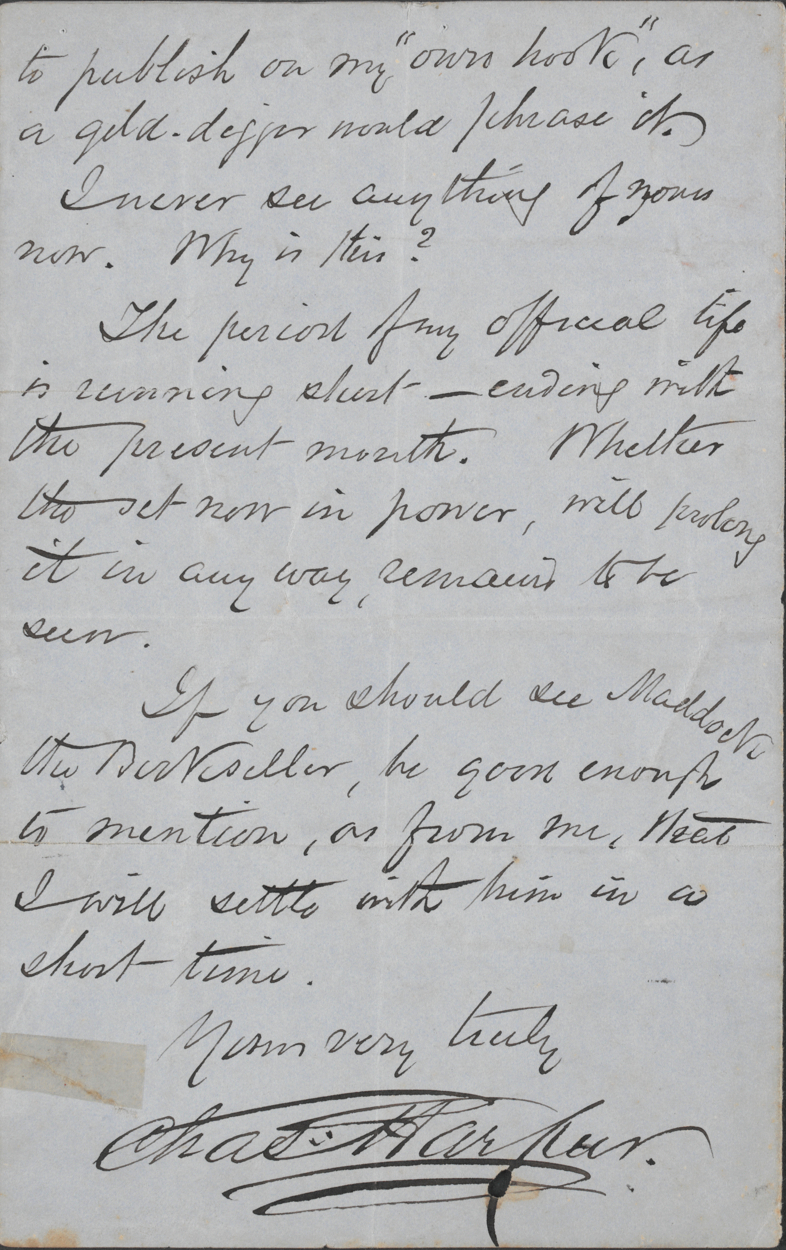 to publish on my "own hook", as
a gold-digger would phrase it.)
I never see anything of yours
now. Why is this?
The period of my official life
is running short — ending with
the present month. Whether
the set now in power, will prolong
it in any way, remains to be
seen.
If you should see Maddock
the Bookseller, be good enough
to mention, as from me, that
I will settle with him in a
short time.
Yours very truly
Chas. Harpur.